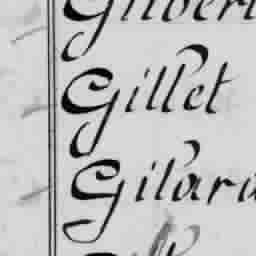 Gilbert
Gillet
Gilard